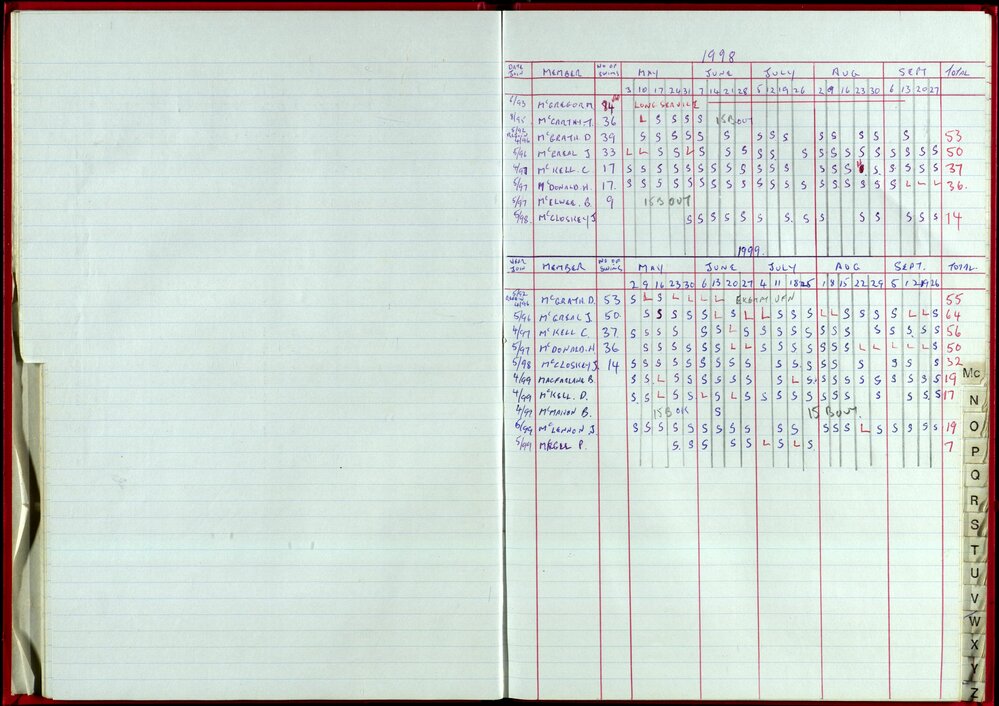 1998
DATE JOIN MEMBER NO OF SWIMS MAY JUNE JULY AUG SEPT TOTAL
3 10 17 24 31 7 14 21 28 5 12 19 26 2 9 16 23 30 6 13 20 27
McGREGOR M. 84 LONG SERVICE
8/95 McCARTHY T. 36 L S S S S 15 B OUT
McGRATH D 39 S S S S S S S S S S S S S S 53
5/96 McGREAL J. 33 L L S S L S S S S S S S S S S S S S S S S 50
4/97 McKELL. C 17 S S S S S S S S S S S S S S S S S S S S 37
5/97 McDONALD. H. 17. S S S S S S S S S S S S S S S S S S S L L L 36.
5/97 McELWEE. B. 9 15 B OUT
5/98. McCLOSKEY J. S S S S S S S S S S S S S S 14
1999.
YEAR JOIN MEMBER NO OF SWIMS MAY JUNE JULY AUG SEPT. TOTAL.
2 9 16 23 30 6 13 20 27 4 11 18 25 1 8 15 22 29 5 12 19 26
McGRATH D. 53 S L S L L L L 55
5/96 McGREAL J. 50. S S S S S L S L L S S S L L S S S S L L S 64
4/97 McKELL C. 37. S S S S S S L S S S S S S S S S S S S 56
5/97 McDONALD. H 36 S S S S S S L L S S S S S S L L L L L S 50
5/98 McCLOSKEY J. 14 S S S S S S S S S S S S S S S S S S 32
4/99 MACFARLANE B. S S L S S S S S S S L S S S S S S S S S S 19
4/99 McKELL. D. S S L S S L S L S S S S S S S S S S S 17
4/97 McMAHON B. 15 B OK S 15 B OUT.
6/99 McLENNON J. S S S S S S S S S S S S S S L S S S S S 19
5/99 P. S. S S S S L S L S. 7
Mc
N
O
P
Q
R
S
T
U
V
W
X
Y
Z